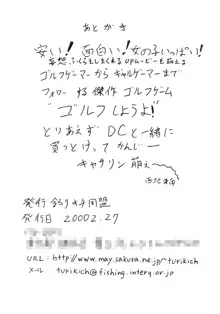 あとがき
安い!面白い!女の子いっぱい!
妄想ふくらましまくれるOPムービーも萌える
ゴルフゲーマーからギャルゲーマーまで
フォローする傑作ゴルフゲーム
"ゴルフしようよ"
とりあえずDCと一緒に
買っとけってかんじー
キャサリン萌え〜
発行 釣りキチ同盟
発行日 2000.2.27
URL: http://www.may.sakura.ne.jp/~turikich
メール turikich@fishing.interq.or.jp